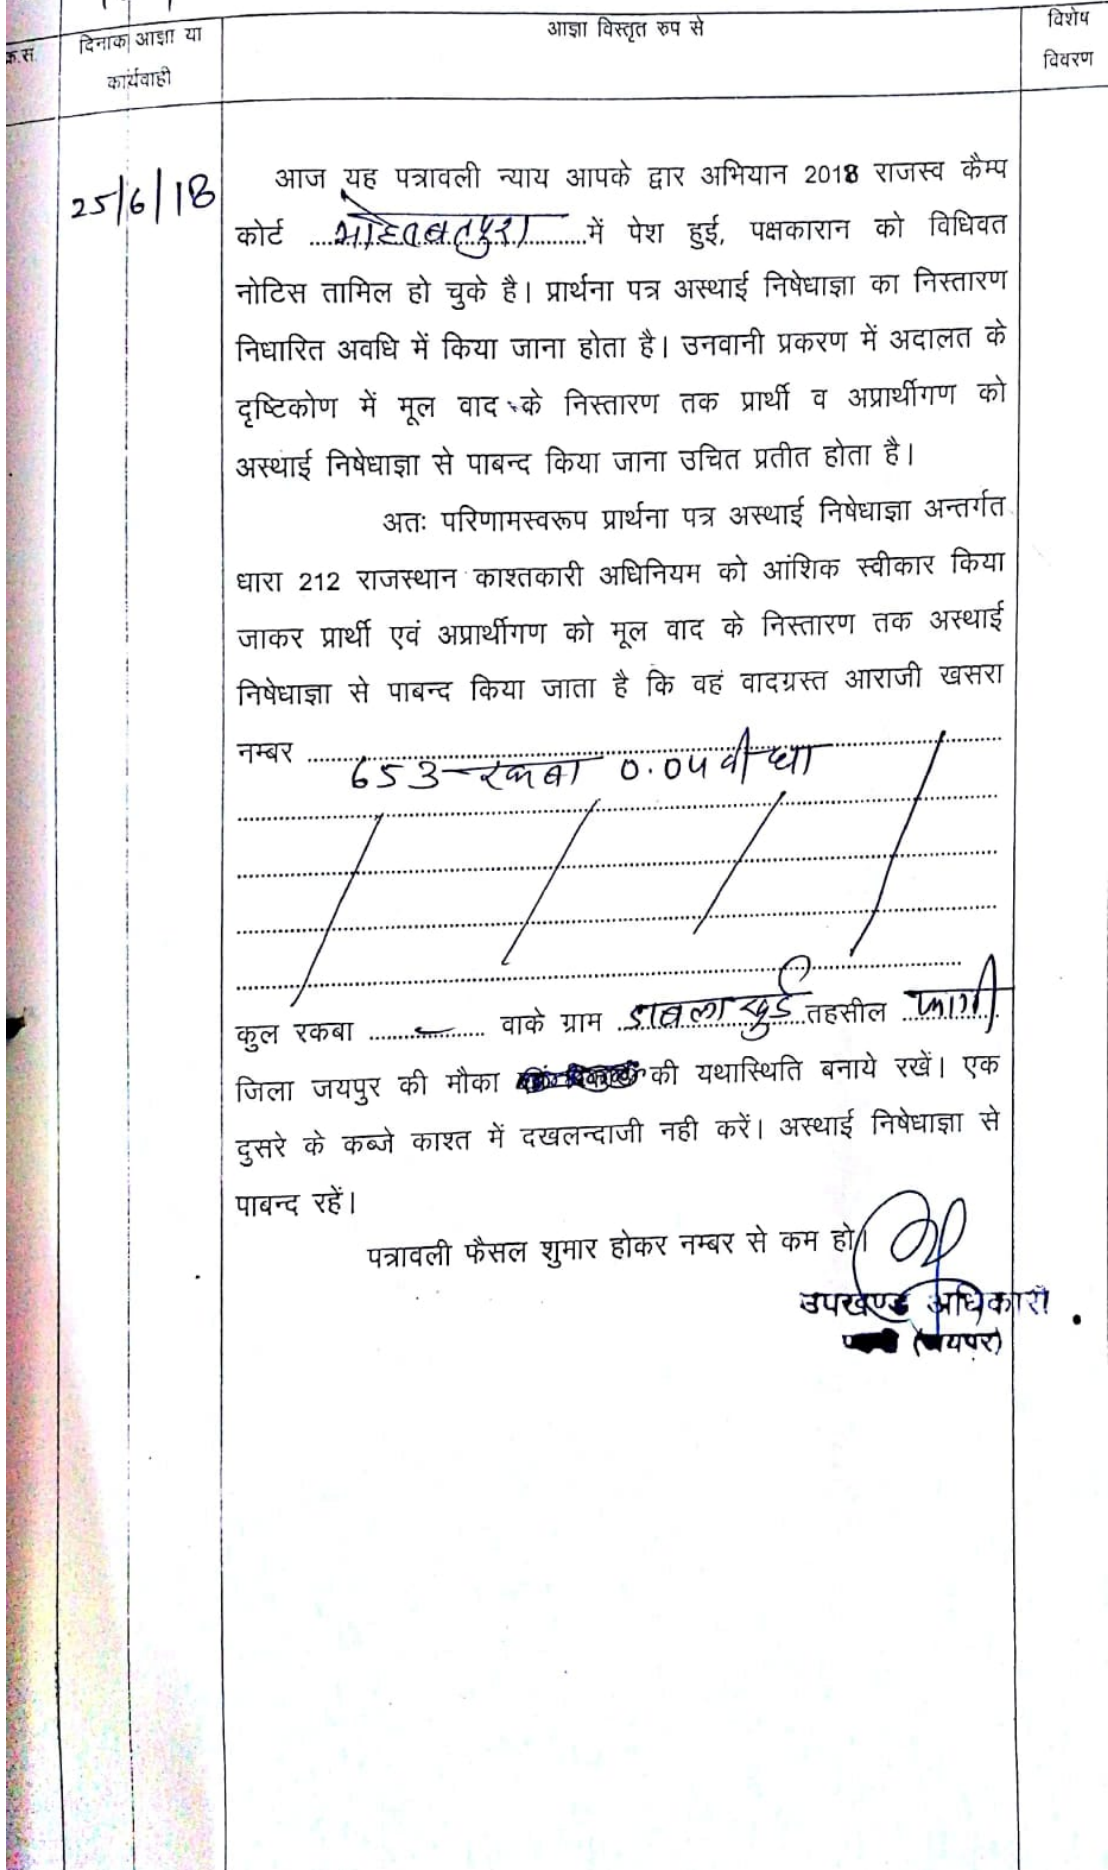 क.स. दिनाक आज्ञा या आज्ञा विस्तृत रुप से विशेष
कार्यवाही विवरण
25/6/18 आज यह पत्रावली न्याय आपके द्वार अभियान 2018 राजस्व कैम्प
कोर्ट ....मोहब्बतपुरा.... में पेश हुई, पक्षकारान को विधिवत
नोटिस तामिल हो चुके है। प्रार्थना पत्र अस्थाई निषेधाज्ञा का निस्तारण
निधारित अवधि में किया जाना होता है। उनवानी प्रकरण में अदालत के
दृष्टिकोण में मूल वाद के निस्तारण तक प्रार्थी व अप्रार्थीगण को
अस्थाई निषेधाज्ञा से पाबन्द किया जाना उचित प्रतीत होता है।
अतः परिणामस्वरूप प्रार्थना पत्र अस्थाई निषेधाज्ञा अन्तर्गत
धारा 212 राजस्थान काश्तकारी अधिनियम को आंशिक स्वीकार किया
जाकर प्रार्थी एवं अप्रार्थीगण को मूल वाद के निस्तारण तक अस्थाई
निषेधाज्ञा से पाबन्द किया जाता है कि वहं वादग्रस्त आराजी खसरा
नम्बर ....
653 - रकबा 0.04 वीघा
कुल रकबा .... वाके ग्राम डाबला खुर्द तहसील फागी
जिला जयपुर की मौका की यथास्थिति बनाये रखें। एक
दुसरे के कब्जे काश्त में दखलन्दाजी नही करें। अस्थाई निषेधाज्ञा से
पाबन्द रहें।
पत्रावली फैसल शुमार होकर नम्बर से कम हो।
उपखण्ड अधिकारी
(जयपुर)